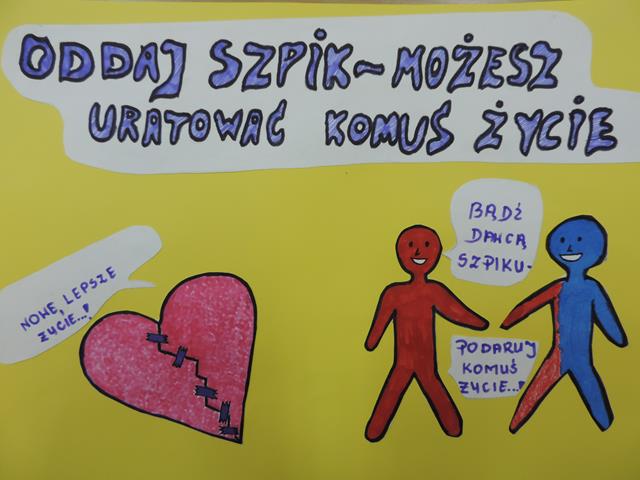 ODDAJ SZPIK~MOŻESZ
URATOWAĆ KOMUŚ ŻYCIE
NOWE, LEPSZE
ŻYCIE...!
BĄDŹ
DAWCĄ
SZPIKU-
PODARUJ
KOMUŚ
ŻYCIE...!